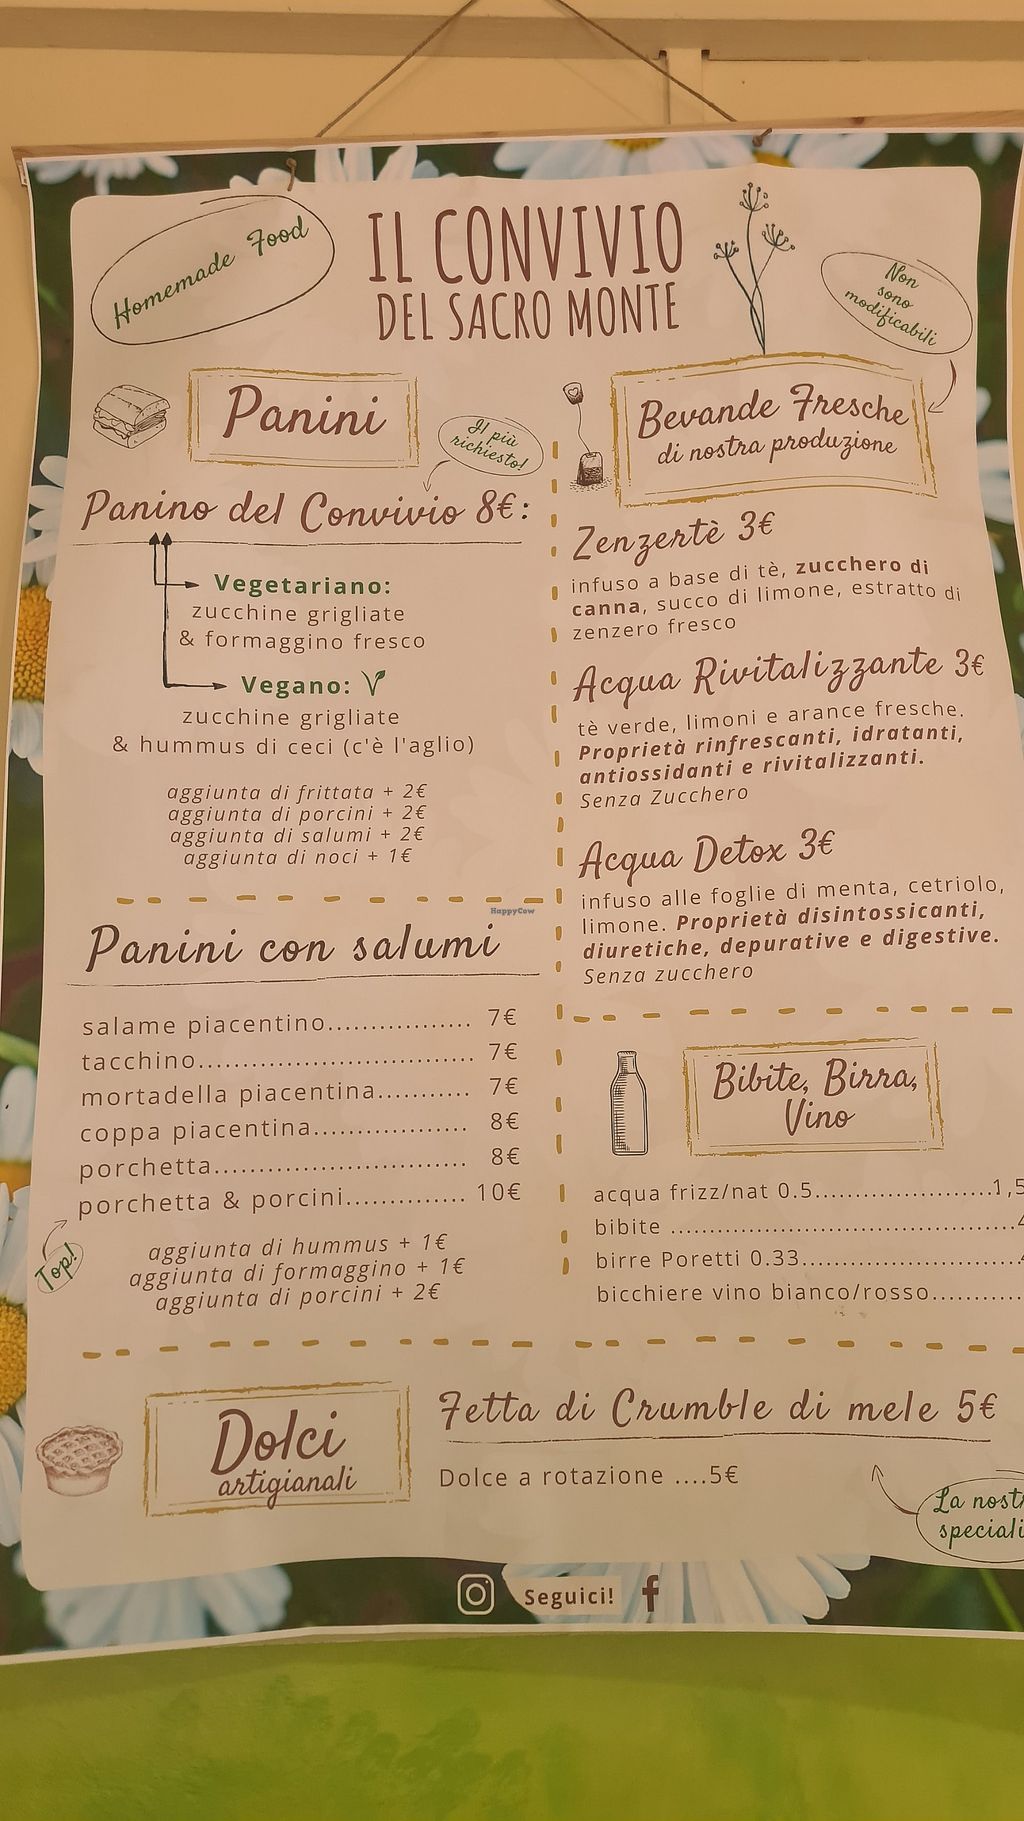 Homemade Food
IL CONVIVIO
DEL SACRO MONTE
Non
sono
modificabili
Panini
Il più
richiesto!
Panino del Convivio 8€:
Vegetariano:
zucchine grigliate
& formaggino fresco
Vegano:
zucchine grigliate
& hummus di ceci (c'è l'aglio)
aggiunta di frittata + 2€
aggiunta di porcini + 2€
aggiunta di salumi + 2€
aggiunta di noci + 1€
Panini con salumi
salame piacentino................. 7€
tacchino................................. 7€
mortadella piacentina........... 7€
coppa piacentina.................. 8€
porchetta.............................. 8€
porchetta & porcini.............. 10€
Top!
aggiunta di hummus + 1€
aggiunta di formaggino + 1€
aggiunta di porcini + 2€
Bevande Fresche
di nostra produzione
Zenzertè 3€
infuso a base di tè, zucchero di
canna, succo di limone, estratto di
zenzero fresco
Acqua Rivitalizzante 3€
tè verde, limoni e arance fresche.
Proprietà rinfrescanti, idratanti,
antiossidanti e rivitalizzanti.
Senza Zucchero
Acqua Detox 3€
infuso alle foglie di menta, cetriolo,
limone. Proprietà disintossicanti,
diuretiche, depurative e digestive.
Senza zucchero
Bibite, Birra,
Vino
acqua frizz/nat 0.5......................1,5
bibite ..........................................
birre Poretti 0.33..........................
bicchiere vino bianco/rosso...........
Dolci
artigianali
Fetta di Crumble di mele 5€
Dolce a rotazione ....5€
La nost
speciali
Seguici!
HappyCow